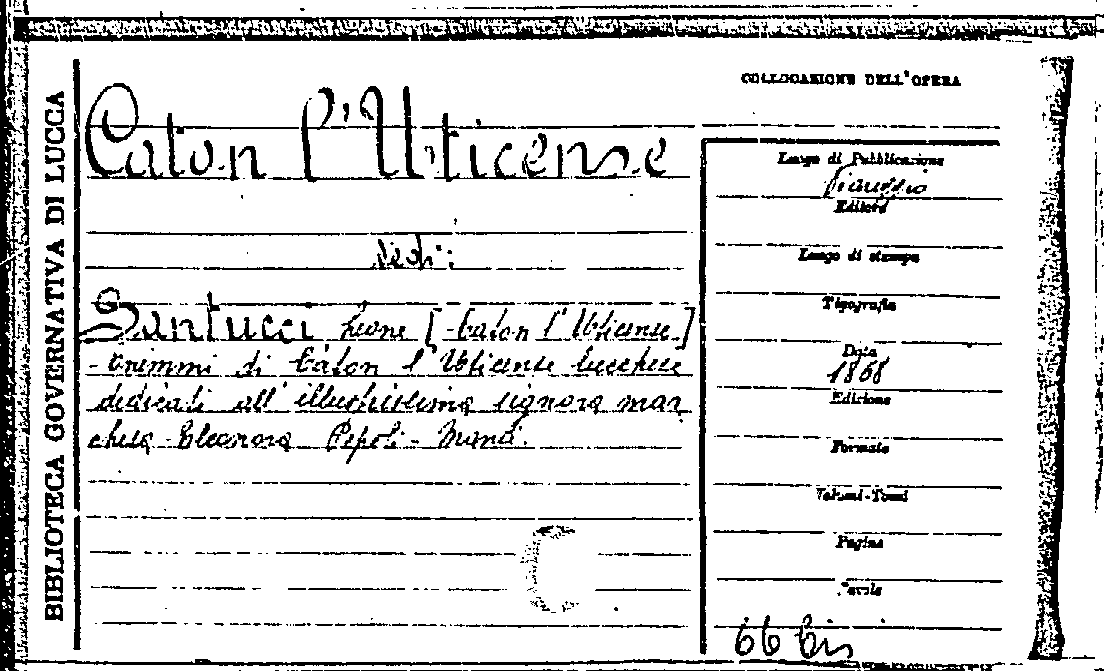 BIBLIOTECA GOVERNATIVA DI LUCCA
COLLOCAZIONE DELL'OPERA
Caton l'Uticense
vedi:
Santucci Leone [Caton l'Uticense]
- Trimmi di Caton l'Uticense lucchese
dedicati all' illustrissima signora mar
chesa Eleonora Pepoli -
Luogo di Pubblicazione
Viareggio
Editore
Luogo di stampa
Tipografia
Data
1868
Edizione
Formato
Volumi-Tomi
Pagine
Tavole
66 bis